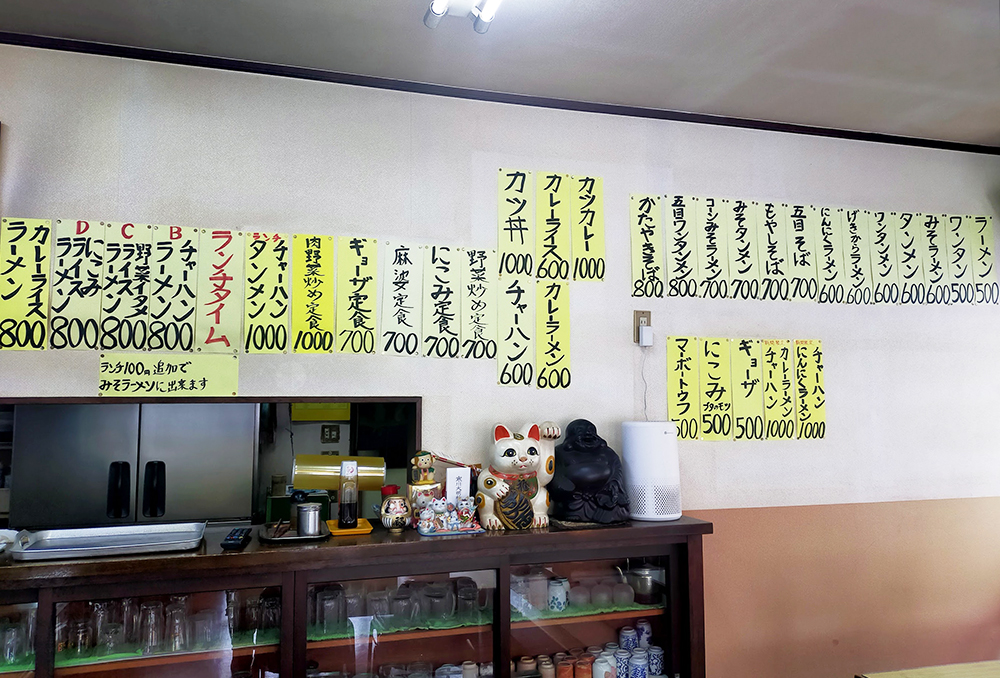 ラーメン
500
ワンタン
500
みそラーメン
600
タンメン
600
ワンタンメン
600
げきからラーメン
600
にんにくラーメン
600
五目そば
700
もやしそば
700
みそタンメン
700
コーンみそラーメン
700
五目ワンタンメン
800
かたやきそば
800
カツカレー
1000
カレーライス
600
カツ丼
1000
カレーラーメン
600
チャーハン
600
野菜炒め定食
700
にこみ定食
700
麻婆定食
700
ギョーザ定食
700
肉野菜炒め定食
1000
ランチ
チャーハン
タンメン
1000
ランチタイム
B
チャーハン
ラーメン
800
C
野菜イタメ
ライス
ラーメン
800
D
にこみ
ライス
ラーメン
800
カレーライス
ラーメン
800
ランチ100円追加で
みそラーメンに出来ます
チャーハン
にんにくラーメン
1000
カレーラーメン
チャーハン
1000
ギョーザ
500
にこみ
ブタのモツ
500
マーボートウフ
500